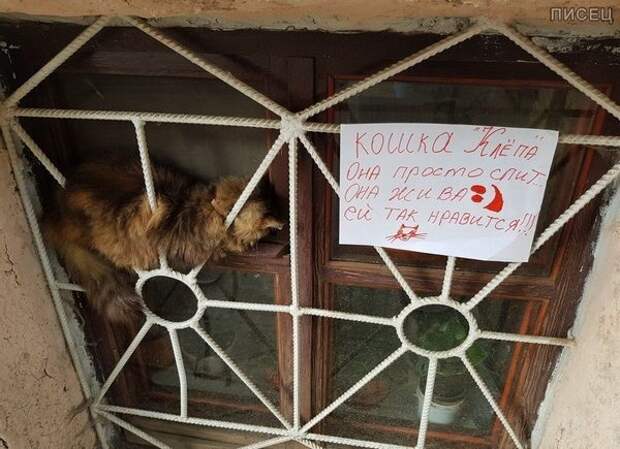 ПИСЕЦ
КОШКА "КЛЁПА"
ОНА ПРОСТО СПИТ..
ОНА ЖИВА
ЕЙ ТАК НРАВИТСЯ!!!